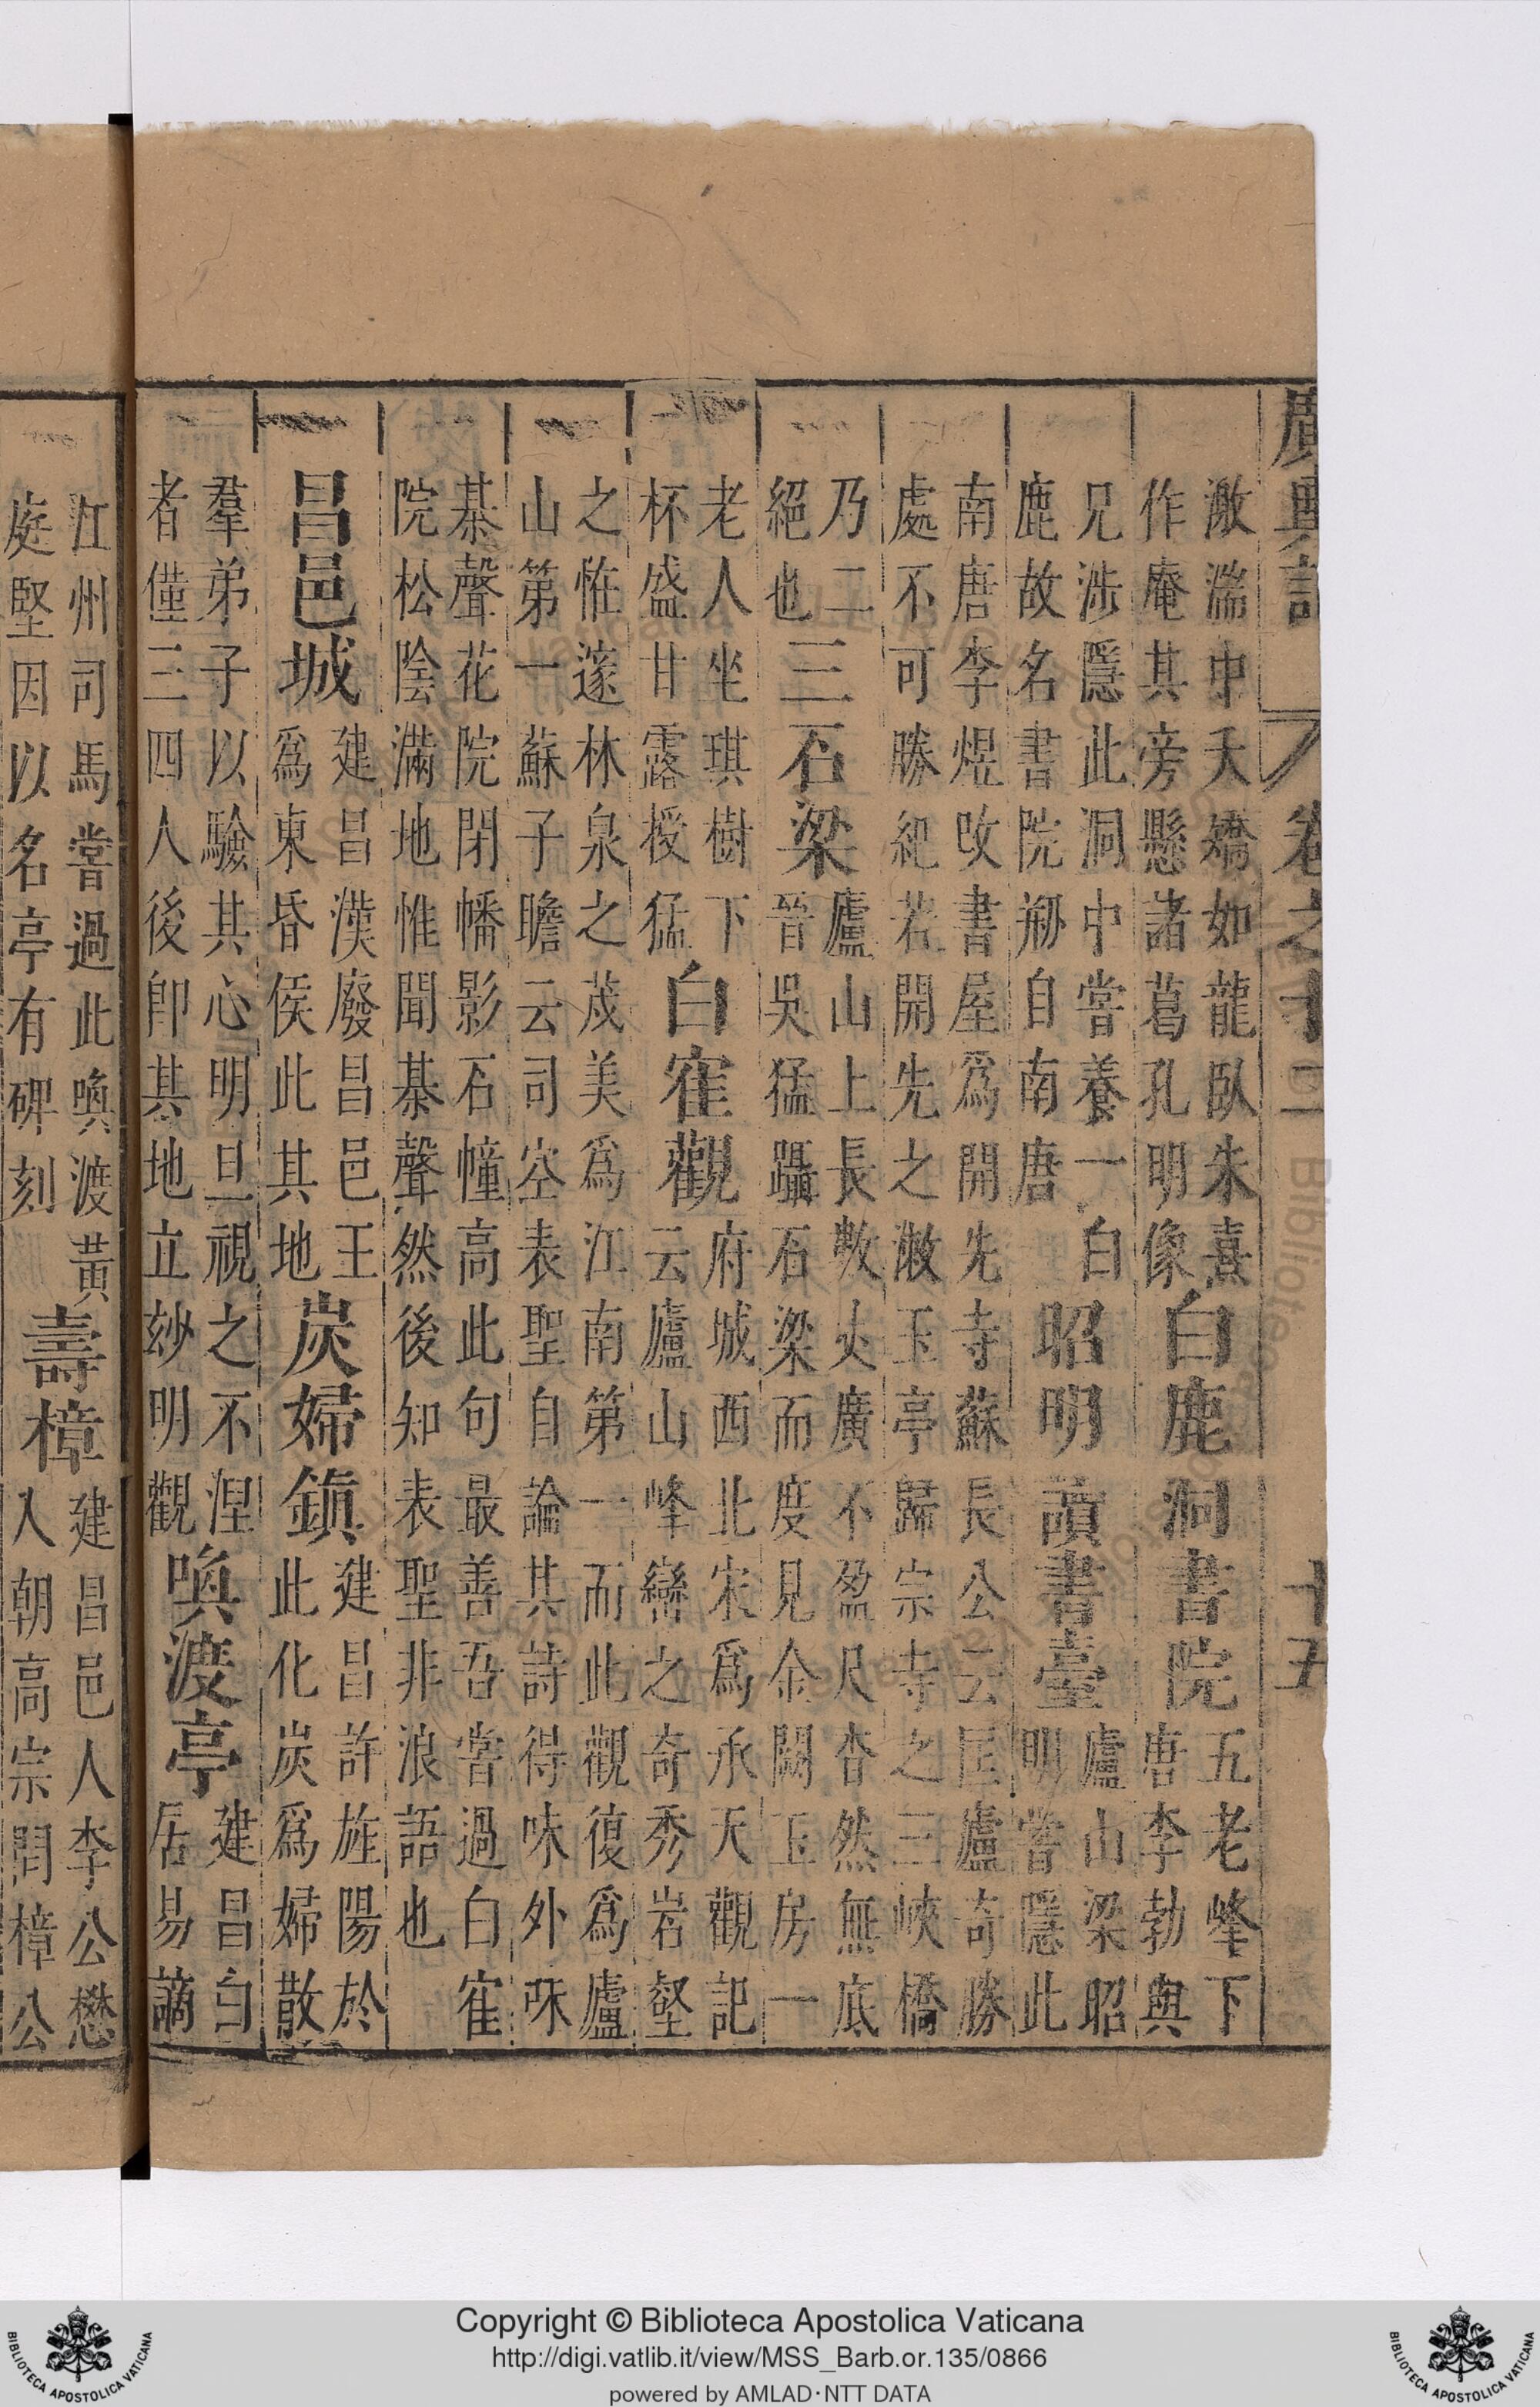 廣輿記 卷之十二 十五
漱湍中夭嬌如龍臥朱熹
作庵其旁懸諸葛孔明像
白鹿洞書院
五老峰下
唐李勃與
兄涉隱此洞中嘗養一白
鹿故名書院剏自南唐
昭明讀書臺
廬山梁昭
明嘗隱此
南唐李煜改書屋爲開先寺蘇長公云匡廬奇勝
處不可勝紀若開先之漱玉亭歸宗寺之三峽橋
乃二
絕也
三石梁
廬山上長數丈廣不盈尺杳然無底
晉吳猛躡石梁而度見金闕玉房一
老人坐琪樹下
杯盛甘露授猛
白寉觀
府城西北宋爲承天觀記
云廬山峰巒之奇秀岩壑
之恠邃林泉之茂美爲江南第一而此觀復爲廬
山第一蘇子瞻云司空表聖自論其詩得味外味
棊聲花院閉幡影石幢高此句最善吾嘗過白寉
院松陰滿地惟聞棊聲然後知表聖非浪語也
昌邑城
建昌漢廢昌邑王
爲東昏侯此其地
炭婦鎮
建昌許旌陽於
此化炭爲婦散
羣弟子以驗其心明旦視之不涅
者僅三四人後卽其地立玅明觀
喚渡亭
建昌白
居易謫
江州司馬嘗過此喚渡黃
庭堅因以名亭有碑刻
壽樟
建昌邑人李公懋
入朝高宗問樟公
Copyright © Biblioteca Apostolica Vaticana
http://digi.vatlib.it/view/MSS_Barb.or.135/0866
powered by AMLAD·NTT DATA
BIBLIOTECA APOSTOLICA VATICANA
BIBLIOTECA APOSTOLICA VATICANA